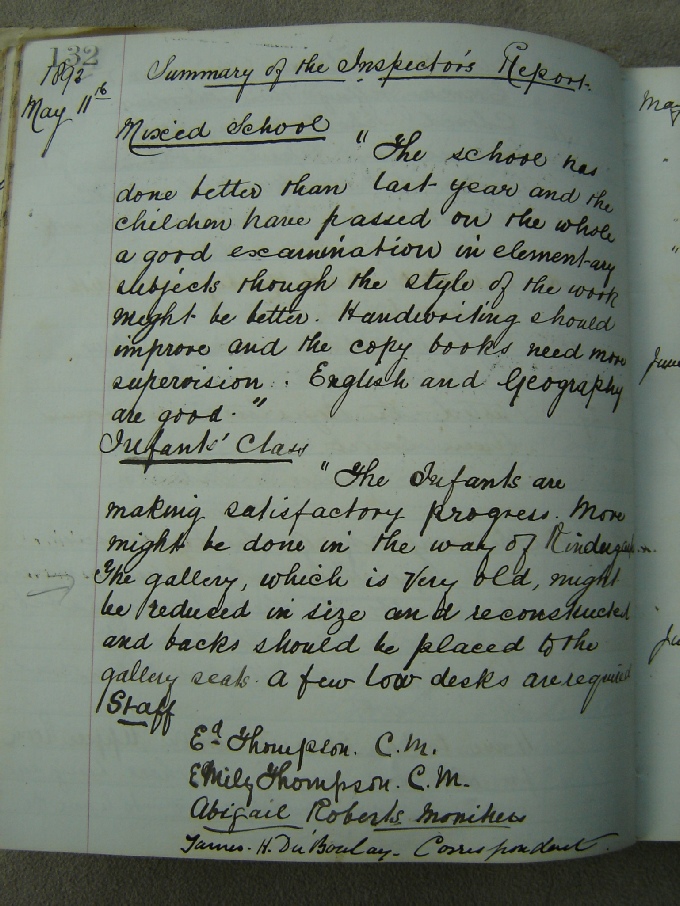 132
1892
May 11th
Summary of the Inspector's Report.
Mixed School
"The school has
done better than last year and the
children have passed on the whole
a good examination in elementary
subjects though the style of the work
might be better. Handwriting should
improve and the copy books need more
supervision. English and Geography
are good."
Infants' Class
"The Infants are
making satisfactory progress. More
might be done in the way of
The gallery, which is very old, might
be reduced in size and reconstructed
and backs should be placed to the
gallery seats a few low desks are required
Staff
Ed Thompson. C.M.
Emily Thompson. C.M.
Abigail Roberts Monitress
James. H. Du Boulay - Correspondent.